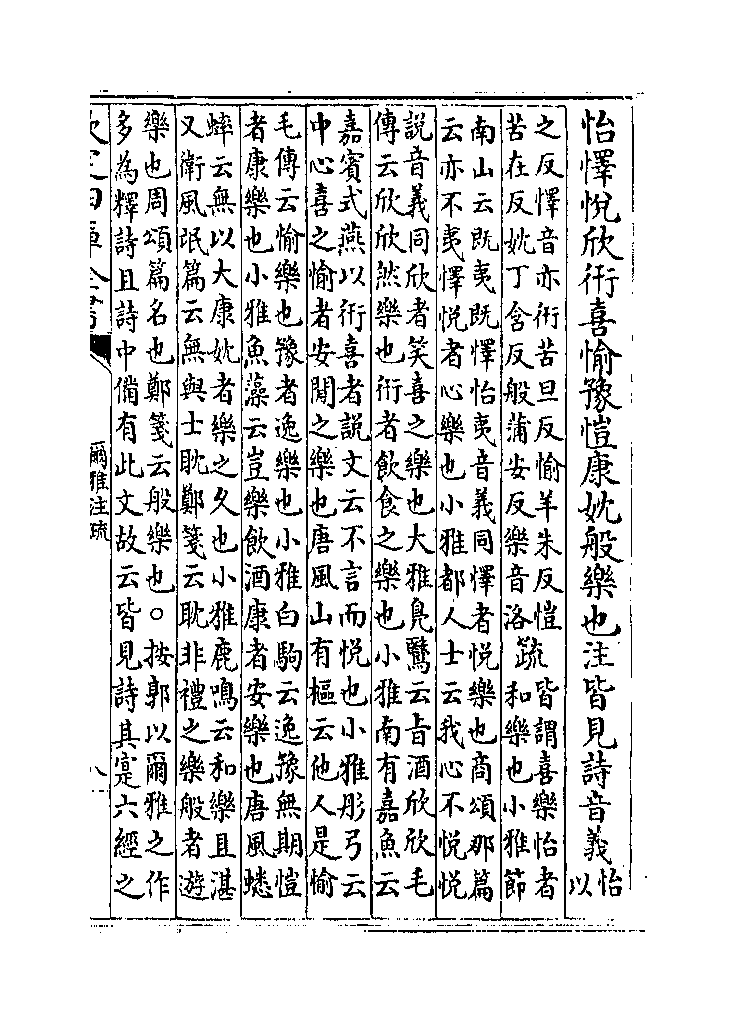 怡懌悅欣衎喜愉豫愷康妉般樂也注皆見詩音義怡以
之反懌音亦衎苦旦反愉羊朱反愷
苦在反妉丁含反般蒲安反樂音洛疏皆謂喜樂怡者
和樂也小雅節
南山云既夷既懌怡夷音義同懌者悅樂也商頌那篇
云亦不夷懌悅者心樂也小雅都人士云我心不悅悅
說音義同欣者笑喜之樂也大雅鳧鷖云旨酒欣欣毛
傳云欣欣然樂也衎者飲食之樂也小雅南有嘉魚云
嘉賓式燕以衎喜者說文云不言而悅也小雅彤弓云
中心喜之愉者安閒之樂也唐風山有樞云他人是愉
毛傳云愉樂也豫者逸樂也小雅白駒云逸豫無期愷
者康樂也小雅魚藻云豈樂飲酒康者安樂也唐風蟋
蟀云無以大康妉者樂之久也小雅鹿鳴云和樂且湛
又衛風氓篇云無與士耽鄭箋云耽非禮之樂般者遊
樂也周頌篇名也鄭箋云般樂也○按郭以爾雅之作
多為釋詩且詩中備有此文故云皆見詩其寔六經之
欽定四庫全書
爾雅注疏
八